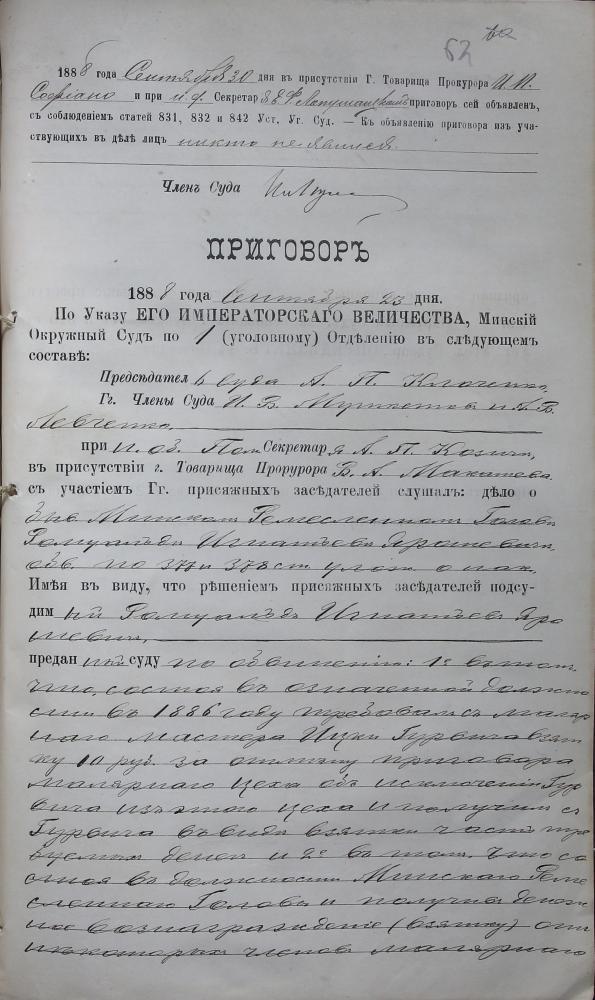 62
1888 года Сентября 30 дня въ присутствіи Г. Товарища Прокурора И. И.
Софіано и при и. ф. Секретар приговоръ сей объявленъ,
съ соблюденіемъ статей 831, 832 и 842 Уст. Уг. Суд. — Къ объявленію приговора изъ уча-
ствующихъ въ дѣлѣ лицъ никто не явился.
Членъ Суда
ПРИГОВОРЪ
1888 года Сентября 23 дня.
По Указу ЕГО ИМПЕРАТОРСКАГО ВЕЛИЧЕСТВА, Минскій
Окружный Судъ по 1 (уголовному) Отдѣленію въ слѣдующемъ
составѣ:
Предсѣдатель Суда А. П. Клоченко,
Гг. Члены Суда И. В. и А. В.
Левченко,
при И. об. Пом. Секретаря А. П. Козичъ,
въ присутствіи г. Товарища Прорурора В. А. Макашева
съ участіемъ Гг. присяжныхъ засѣдателей слушалъ: дѣло о
быв. Минскомъ Ремесленномъ Головѣ
Ромуальдѣ Игнатьевѣ Ярошевичѣ,
обв. по 377 и 378 ст. улож. о нак.
Имѣя въ виду, что рѣшеніемъ присяжныхъ засѣдателей подсу-
димый Ромуальдъ Игнатьевъ Яро
шевичъ,
преданный суду по обвиненію: 1º въ томъ,
что, состоя въ означенной должно
сти въ 1886 году требовалъ съ маляр
наго мастера Ицки Гурвича взят
ку 10 руб. за отмѣну приговора
малярнаго цеха объ исключеніи Гур
вича изъ этого цеха и получилъ съ
Гурвича въ видѣ взятки часть тре
буемыхъ денегъ и 2º въ томъ, что со
стоя въ должности Минскаго Реме
сленнаго Головы и получивъ денеж
ное вознагражденіе (взятку) отъ
нѣкоторыхъ членовъ малярнаго